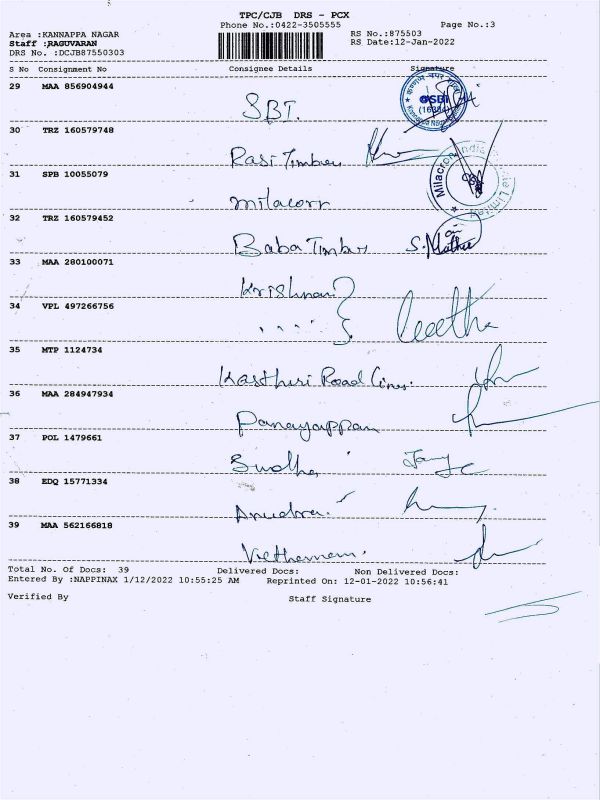 TPC/CJB DRS - PCX
Phone No.:0422-3505555 Page No.:3
Area :KANNAPPA NAGAR RS No.:875503
Staff :RAGUVARAN RS Date:12-Jan-2022
DRS No. :DCJB87550303
S No Consignment No Consignee Details Signature
29 MAA 856904944
SBI.
SBI
30 TRZ 160579748
Rasi Timber
31 SPB 10055079
Milacron India
Limited
32 TRZ 160579452
Baba Timber S. Mathu
33 MAA 280100071
Krishnan
34 VPL 497266756
35 MTP 1124734
Kasthuri Road Lines.
36 MAA 284947934
Panayappan
37 POL 1479661
Sudha
38 EDQ 15771334
39 MAA 562166818
Total No. Of Docs: 39 Delivered Docs: Non Delivered Docs:
Entered By :NAPPINAX 1/12/2022 10:55:25 AM Reprinted On: 12-01-2022 10:56:41
Verified By Staff Signature